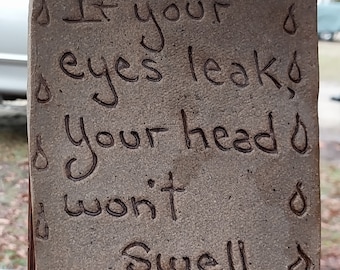 If your
eyes leak,
your head
won't
swell